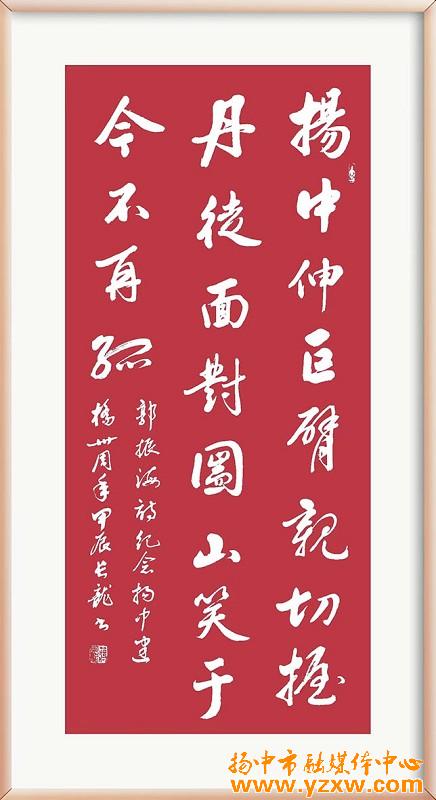 揚中伸巨臂親切握
丹徒面對圌山笑于
今不再孤
郭振海詩紀念揚中建
橋卅周年甲辰长龍书
扬中市融媒体中心
www.yzxw.com